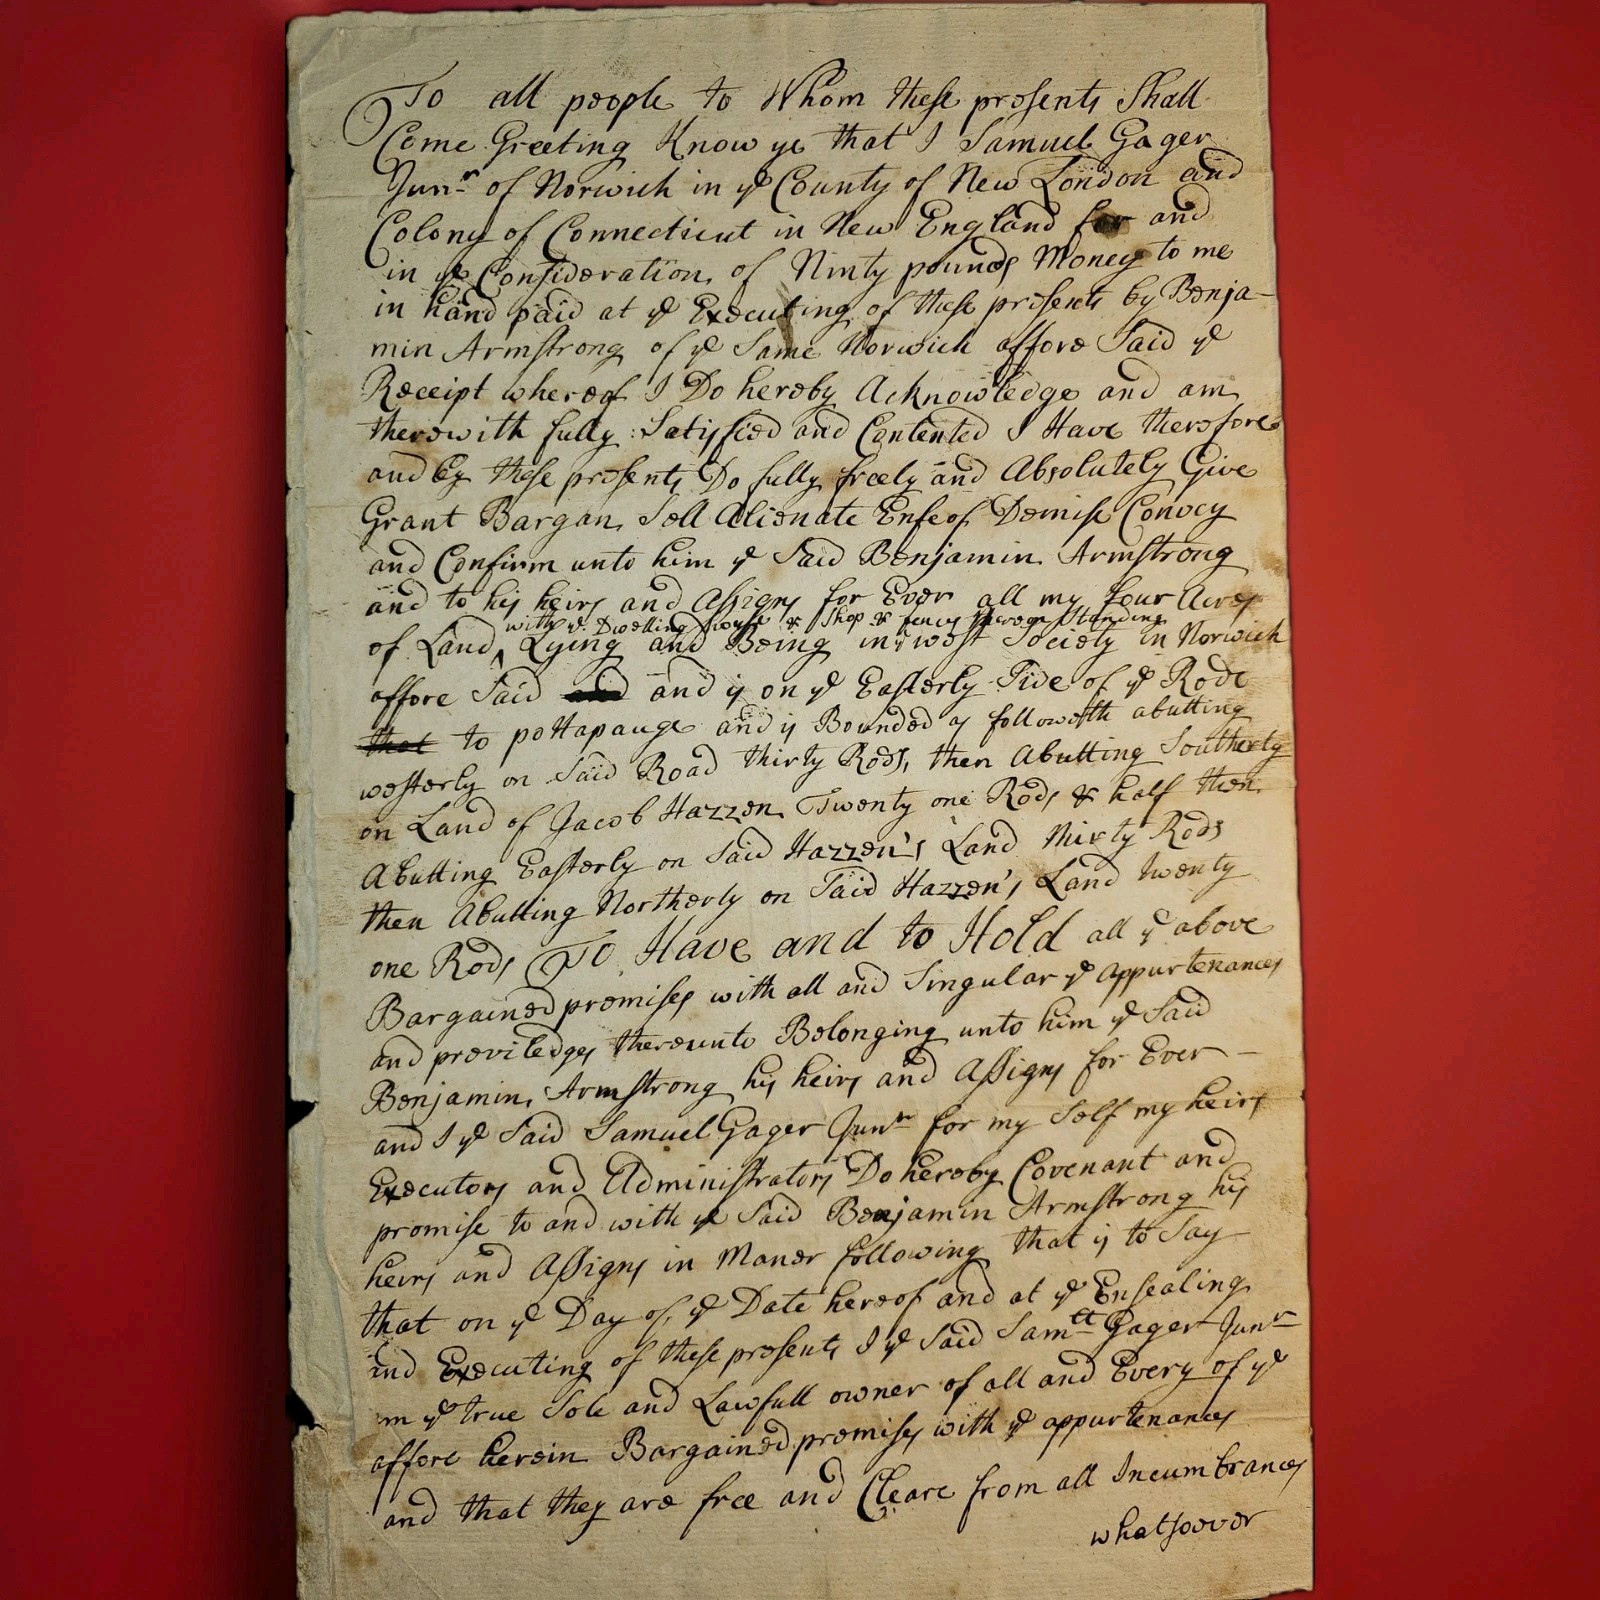 To all people to Whom these presents Shall
Come Greeting Know ye that I Samuel Gager
Junr of Norwich in ye County of New London and
Colony of Connecticut in New England for and
in ye Consideration of Ninty pounds Money to me
in hand paid at ye Executing of these presents by Benja-
min Armstrong of ye Same Norwich affore Said ye
Receipt whereof I Do hereby Acknowledge and am
therewith fully Satisfied and Contented I Have therefore
and by these presents Do fully freely and Absolutely Give
Grant Bargan Sell Alienate Enfeof Demise Convey
and Confirm unto him ye Said Benjamin Armstrong
and to his heirs and Assigns for Ever all my four Acres
with ye Dwelling house & Shop & fences thereon Standing
of Land ^ Lying and Being in ye west Society in Norwich
affore Said and and is on ye Easterly Side of ye Rode
that to pottapauge and is Bounded as followeth abutting
westerly on Said Road thirty Rods, then Abutting Southerly
on Land of Jacob Hazzen Twenty one Rods & half then
Abutting Easterly on Said Hazzen's Land thirty Rods
then Abutting Northerly on Said Hazzen's Land twenty
one Rods To Have and to Hold all ye above
Bargained premises with all and Singular ye appurtenances
and previledges thereunto Belonging unto him ye Said
Benjamin Armstrong his heirs and Assigns for Ever -
and I ye Said Samuel Gager Junr for my Self my heirs
Executors and Administrators Do hereby Covenant and
promise to and with ye Said Benjamin Armstrong his
heirs and Assigns in Maner following that is to Say
that on ye Day of ye Date hereof and at ye Ensealing
and Executing of these presents I ye Said Samll Gager Junr
am ye true Sole and Lawfull owner of all and Every of ye
affore herein Bargained premises with ye appurtenances
and that they are free and Cleare from all Incumbrances
whatsoever